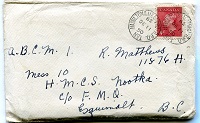 A.B.C.M. 1. R. Matthews
11876 H.
Mess 10
H.M.C.S. Nootka
c/o F.M.O.
Esquimalt B.C.